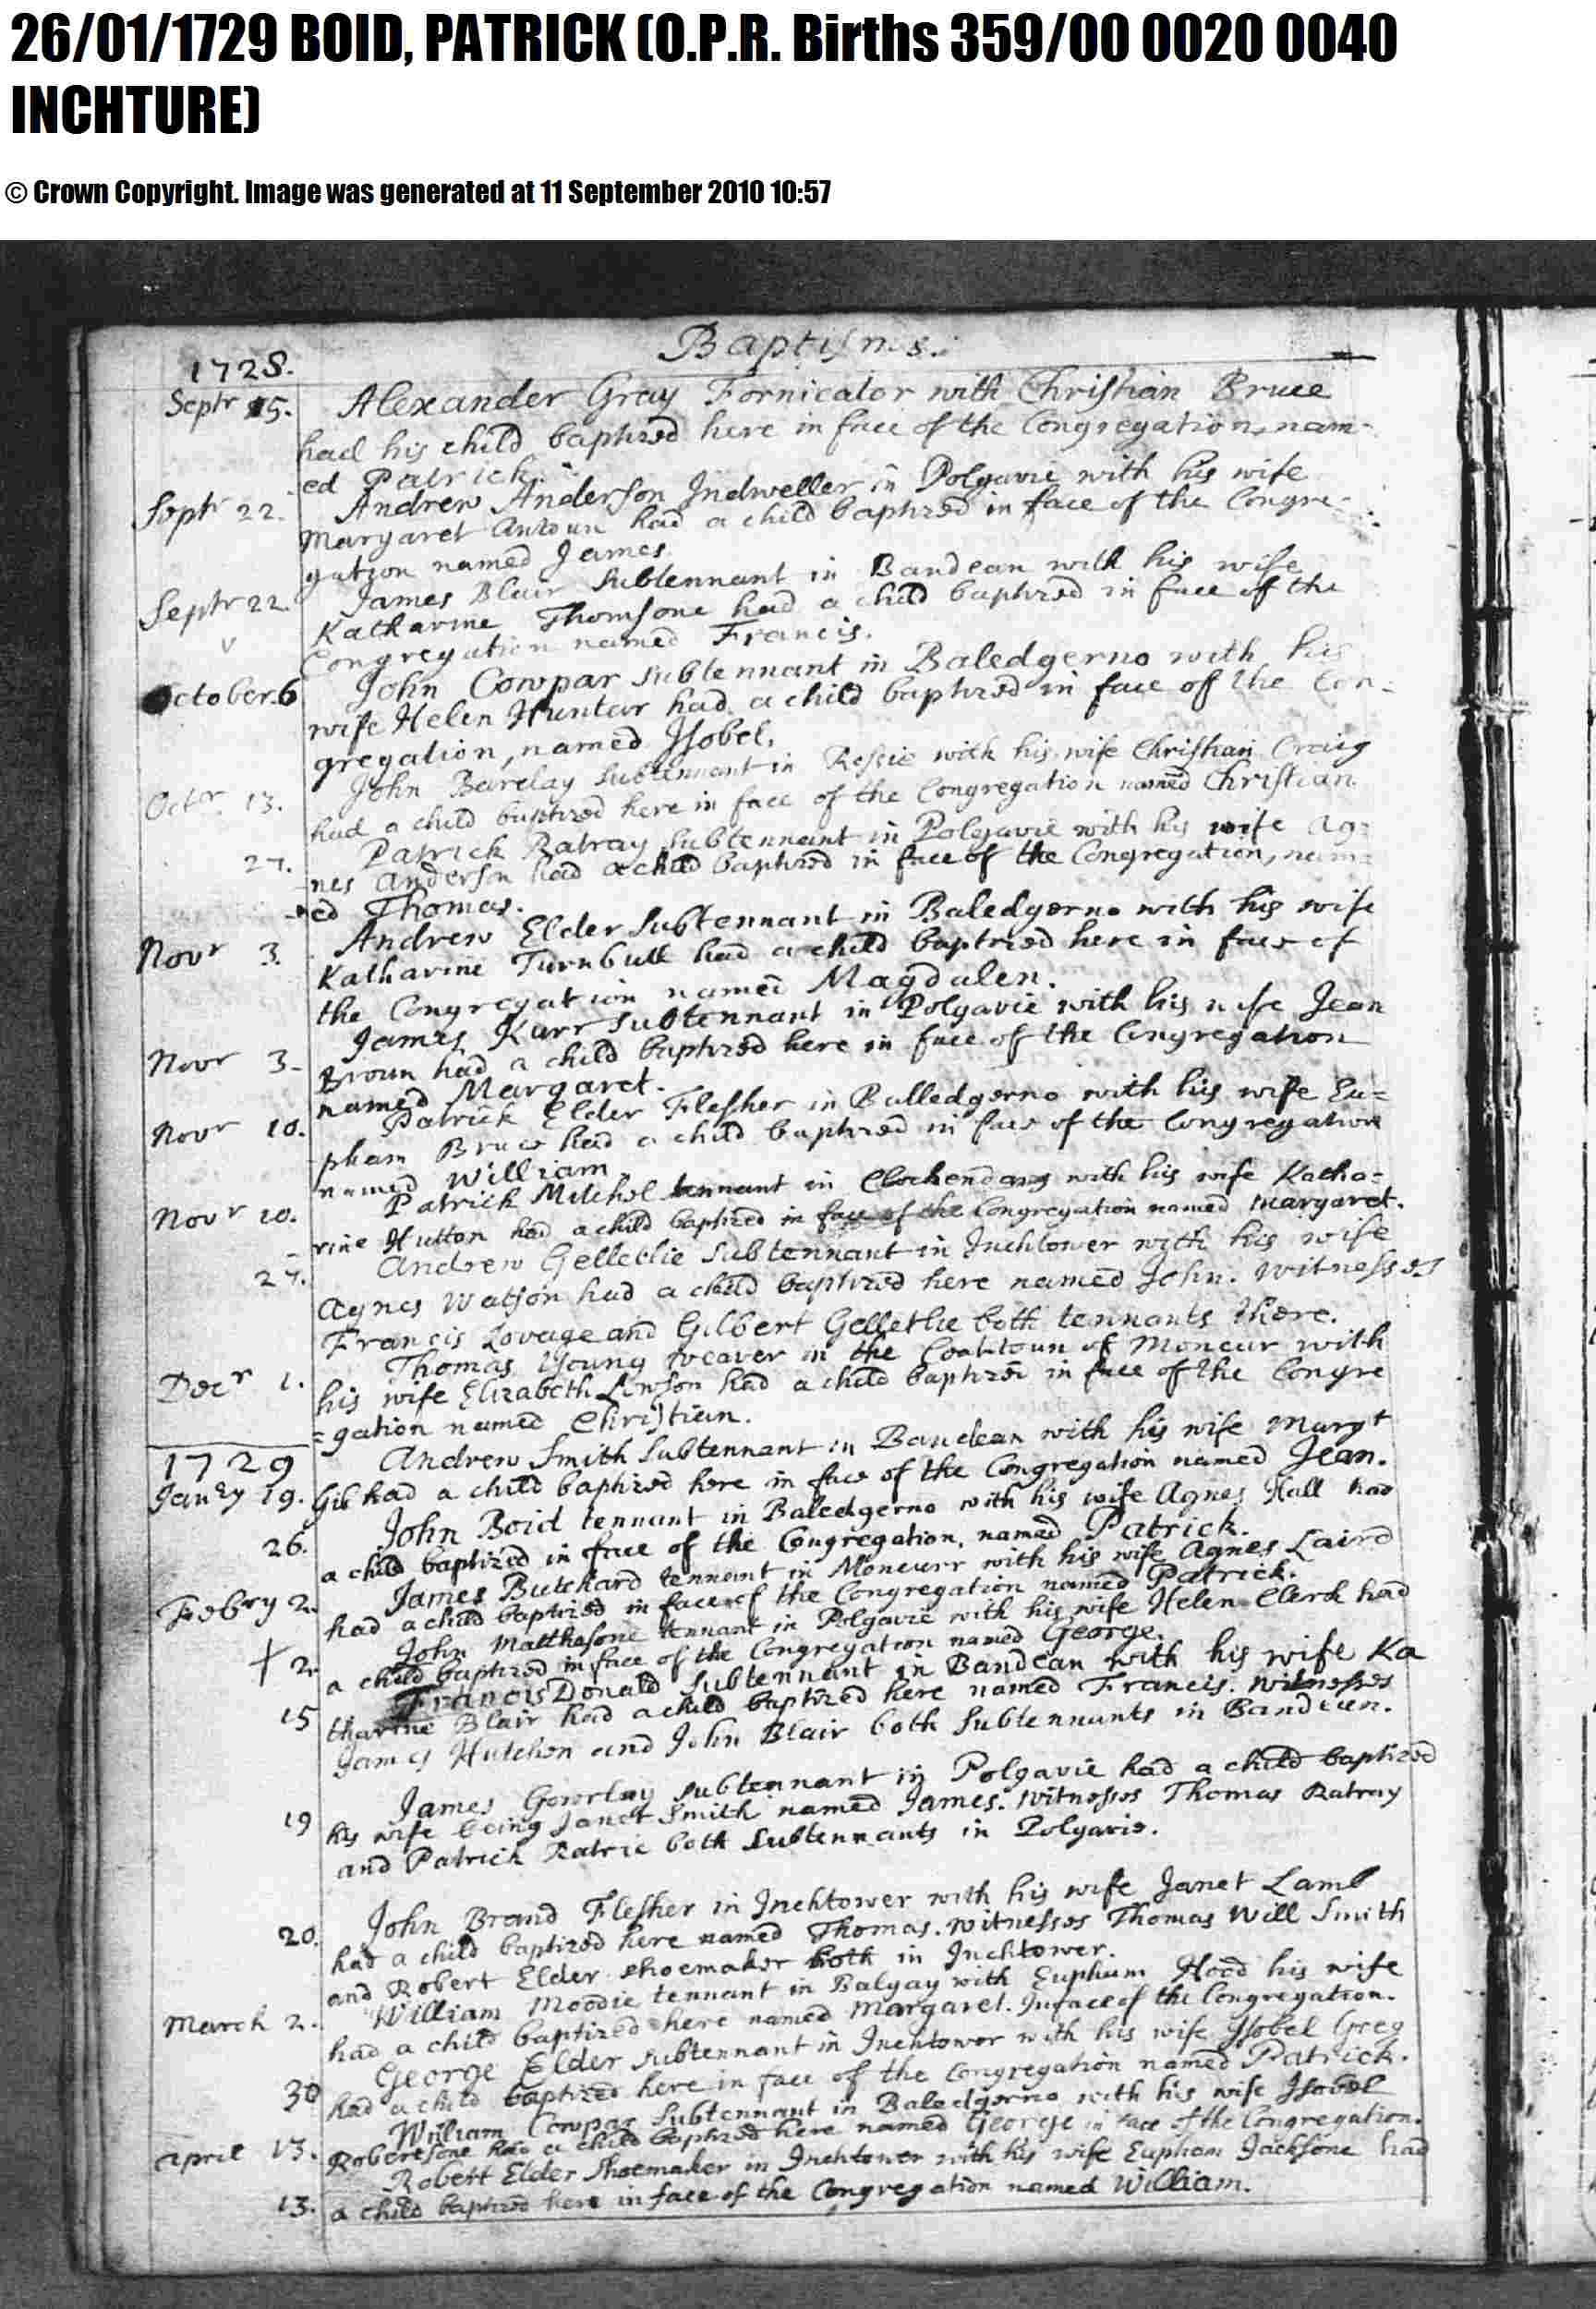 26/01/1729 BOID, PATRICK (O.P.R. Births 359/00 0020 0040
INCHTURE)
© Crown Copyright. Image was generated at 11 September 2010 10:57
Baptisms.
1728.
Septr 15. Alexander Gray Fornicator with Christian Bruce
had his child baptized here in face of the Congregation, nam-
ed Patrick.
Septr 22. Andrew Anderson Indweller in Polgavie with his wife
Margaret had a child baptized in face of the Congre-
gation named James
Septr 22. James Blair Subtennant in Bandean with his wife
Katharine Thomsone had a child baptized in face of the
Congregation named Francis.
October 6 John Cowpar subtennant in Baledgerno with his
wife Helen Huntar had a child baptized in face of the Con-
gregation, named Isobel.
Octr 13. John Barclay Subtennant in Rossie with his wife Christian Craig
had a child baptized here in face of the Congregation named Christian
27. Patrick Ratray Subtennant in Polgavie with his wife Ag=
nes Anderson had a child baptized in face of the Congregation, nam=
ed Thomas.
Novr 3. Andrew Elder Subtennant in Baledgerno with his wife
Katharine Turnbull had a child baptized here in face of
the Congregation named Magdalen.
Novr 3. James Kurr Subtennant in Polgavie with his wife Jean
Broun had a child baptized here in face of the Congregation
named Margaret.
Novr 10. Patrick Elder Flesher in Balledgerno with his wife Eu=
pham Bruce had a child baptized in face of the Congregation
named William
Novr 10. Patrick Mitchel tennant in with his wife Katha=
rine Hutton had a child baptized in face of the Congregation named Margaret.
24. Andrew Gelletlie Subtennant in Inchtower with his wife
Agnes Watson had a child baptized here named John. Witnesses
Francis Lovage and Gilbert Gellethe both tennants there.
Decr 1. Thomas Young weaver in the of Moncur with
his wife Elizabeth Lowson had a child baptized in face of the Congre
=gation named Christian.
1729
Janry 19. Andrew Smith Subtennant in Bandean with his wife Margt
Gib had a child baptized here in face of the Congregation named Jean.
26. John Boid tennant in Baledgerno with his wife Agnes Hall had
a child baptized in face of the Congregation, named Patrick.
Febry 2. James Butchard tennant in Moncurr with his wife Agnes Laird
had a child baptized in face of the Congregation named Patrick.
+ 2. John Matthesone tennant in Polgavie with his wife Helen Clerk had
a child baptized in face of the Congregation named George.
15 Francis Donald Subtennant in Bandean with his wife Ka
tharine Blair had a child baptized here named Francis. Witnesses
James Hutchon and John Blair both Subtennants in Bandean.
19 James Gourlay subtennant in Polgavie had a child baptized
his wife being Janet Smith named James. Witnesses Thomas Ratray
and Patrick Ratrie both Subtennants in Polgavie.
20. John Brand Flesher in Inchtower with his wife Janet Lamb
had a child baptized here named Thomas. Witnesses Thomas Will Smith
and Robert Elder shoemaker both in Inchtower.
March 2. William Moodie tennant in Balgay with Eupham Hood his wife
had a child baptized here named Margaret. In face of the Congregation.
30 George Elder subtennant in Inchtower with his wife Isobel Greg
had a child baptized here in face of the Congregation named Patrick.
April 13. William Cowpar Subtennant in Baledgerno with his wife Isobel
Robertsone had a child baptized here named George in face of the Congregation.
13. Robert Elder Shoemaker in Inchtower with his wife Eupham Jacksone had
a child baptized here in face of the Congregation named William.